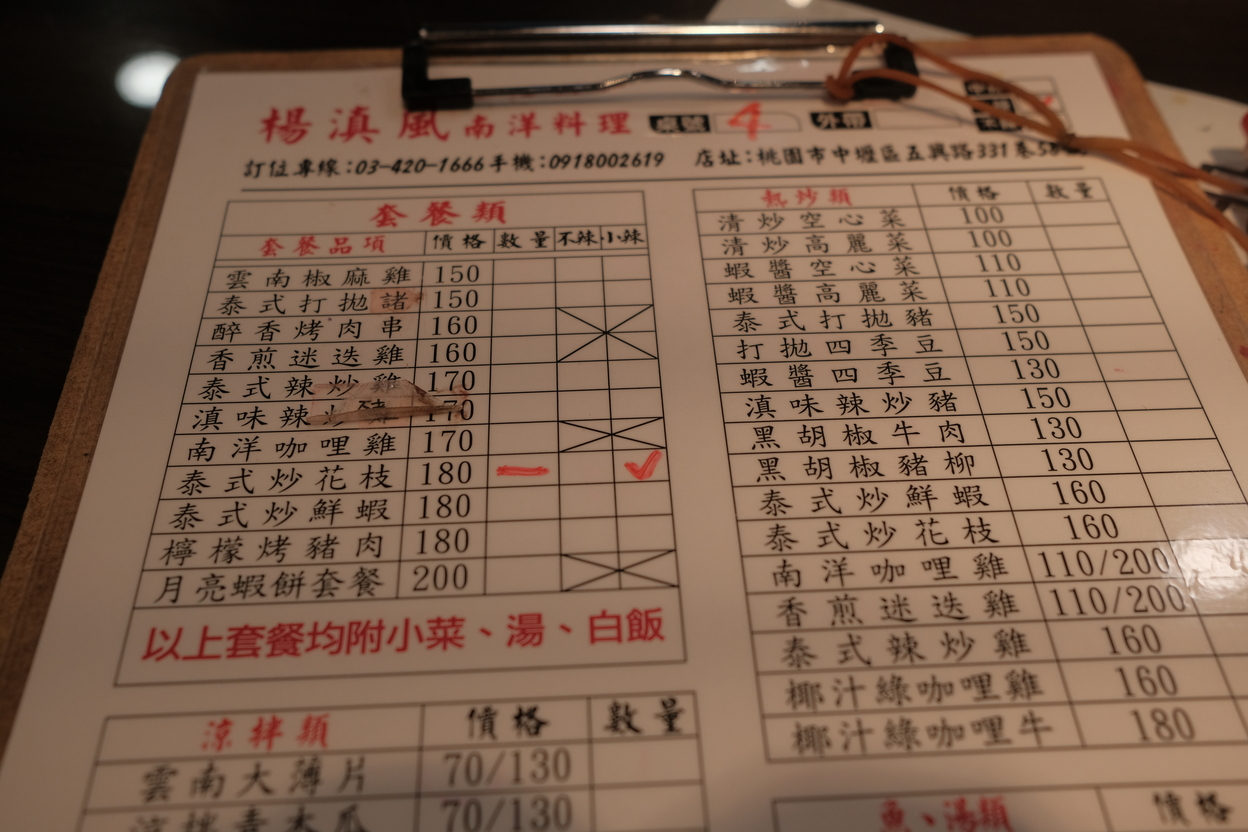 楊滇風南洋料理 桌號 4 外帶
訂位專線:03-420-1666 手機:0918002619 店址:桃園市中壢區五興路331巷58
套餐類
套餐品項 價格 數量 不辣 小辣
雲南椒麻雞 150
泰式打拋諸 150
醉香烤肉串 160
香煎迷迭雞 160
泰式辣炒雞 170
滇味辣炒豬 170
南洋咖哩雞 170
泰式炒花枝 180 一 ✓
泰式炒鮮蝦 180
檸檬烤豬肉 180
月亮蝦餅套餐 200
以上套餐均附小菜、湯、白飯
涼拌類 價格 數量
雲南大薄片 70/130
涼拌青木瓜 70/130
熱炒類 價格 數量
清炒空心菜 100
清炒高麗菜 100
蝦醬空心菜 110
蝦醬高麗菜 110
泰式打拋豬 150
打拋四季豆 150
蝦醬四季豆 130
滇味辣炒豬 150
黑胡椒牛肉 130
黑胡椒豬柳 130
泰式炒鮮蝦 160
泰式炒花枝 160
南洋咖哩雞 110/200
香煎迷迭雞 110/200
泰式辣炒雞 160
椰汁綠咖哩雞 160
椰汁綠咖哩牛 180
魚、湯類 價格